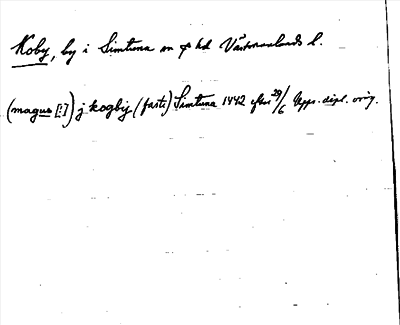 Koby, by i Simtuna sn o hd Västmanlands l.
(magus [:]) j kogbij (faste) Simtuna 1442 efter 29/6 Upps. dipl. orig.